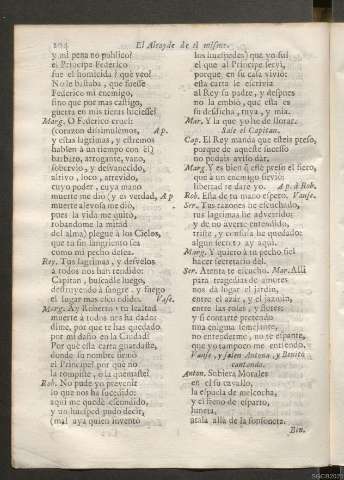 204 El Alcayde de sí mismo.
y mi pena no publico!
el Principe Federico
fue el homicida! què veo!
No le bastaba, que fuesse
Federico mi enemigo,
sino que por mas castigo,
guerra en mis tierras hiciesse!
Marg. O Federico cruel!
(corazon dissimulemos, Ap.
y estas lagrimas, y estremos
hablen à un tiempo con èl)
barbaro, arrogante, vano,
sobervio, y desvanecido,
altivo, loco, atrevido,
cuyo poder, cuya mano
muerte me dio (y es verdad, Ap
muerte alevosa me diò,
pues la vida me quitò,
robandome la mitad
del alma) plegue à los Cielos,
que tu fin sangriento sea
como mi pecho desea.
Rey. Tus lagrimas, y desvelos
à todos nos han rendido:
Capitan, buscadle luego,
destruyendo à sangre, y fuego
el lugar mas escondido. Vase.
Marg. Ay Roberto! tu lealtad
muerte à todos nos ha dado:
dime, por que te has quedado
por mi daño en la Ciudad?
Por què esta carta guardaste,
donde su nombre firmò
el Principe? por que no
la rompiste, ò la quemaste?
Rob. No pude yo prevenir
lo que nos ha sucedido:
aqui me quedè escondido,
y un huesped pudo decir,
(mal aya quien inventò
los huespedes) que yo fui
el que al Principe servi,
porque en su casa vivió:
esta carta le escrivia
al Rey su padre, y despues
no la embiò, que esta es
su desdicha, tuya, y mia.
Mar. Y la que yo he de llorar.
Sale el Capitan.
Cap. El Rey manda que esteis preso,
porque de aqueste sucesso
no podais aviso dar.
Marg. Y es bien q̃ estè preso el fiero,
que à un enemigo fiero
libertad te darè yo. Ap. à Rob.
Rob. Essa de tu mano espero. Vanse.
Ser. Tus razones he escuchado,
tus lagrimas he advertido;
y de no averte entendido,
triste, y confusa he quedado:
algun secreto ay aqui.
Marg. Y quiero à tu pecho fiel
hacer secretario del.
Ser. Atenta te escucho. Mar. Alli
para tragedias de amores
nos dà lugar el jardin,
entre el azar, y el jazmin,
entre las rosas, y flores:
y si contarte pretendo
una enigma semejante,
no entenderme, no te espante,
que yo tampoco me entiendo.
Vanse, y salen Antona, y Benito
cantando.
Anton. Subiera Morales
en el su cavallo,
la espuela de melcocha,
y el freno de esparto,
lunera,
atala allà de la sonsoneta.
Bin.